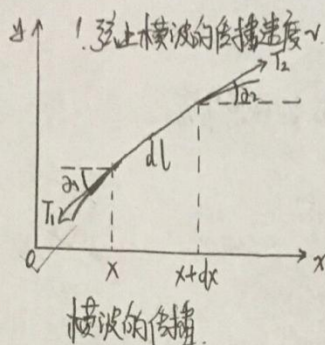 y
1. 弦上横波的传播速度v.
T₂
α₂
dl
α₁
T₁
0
x
x+dx
x
横波的传播.